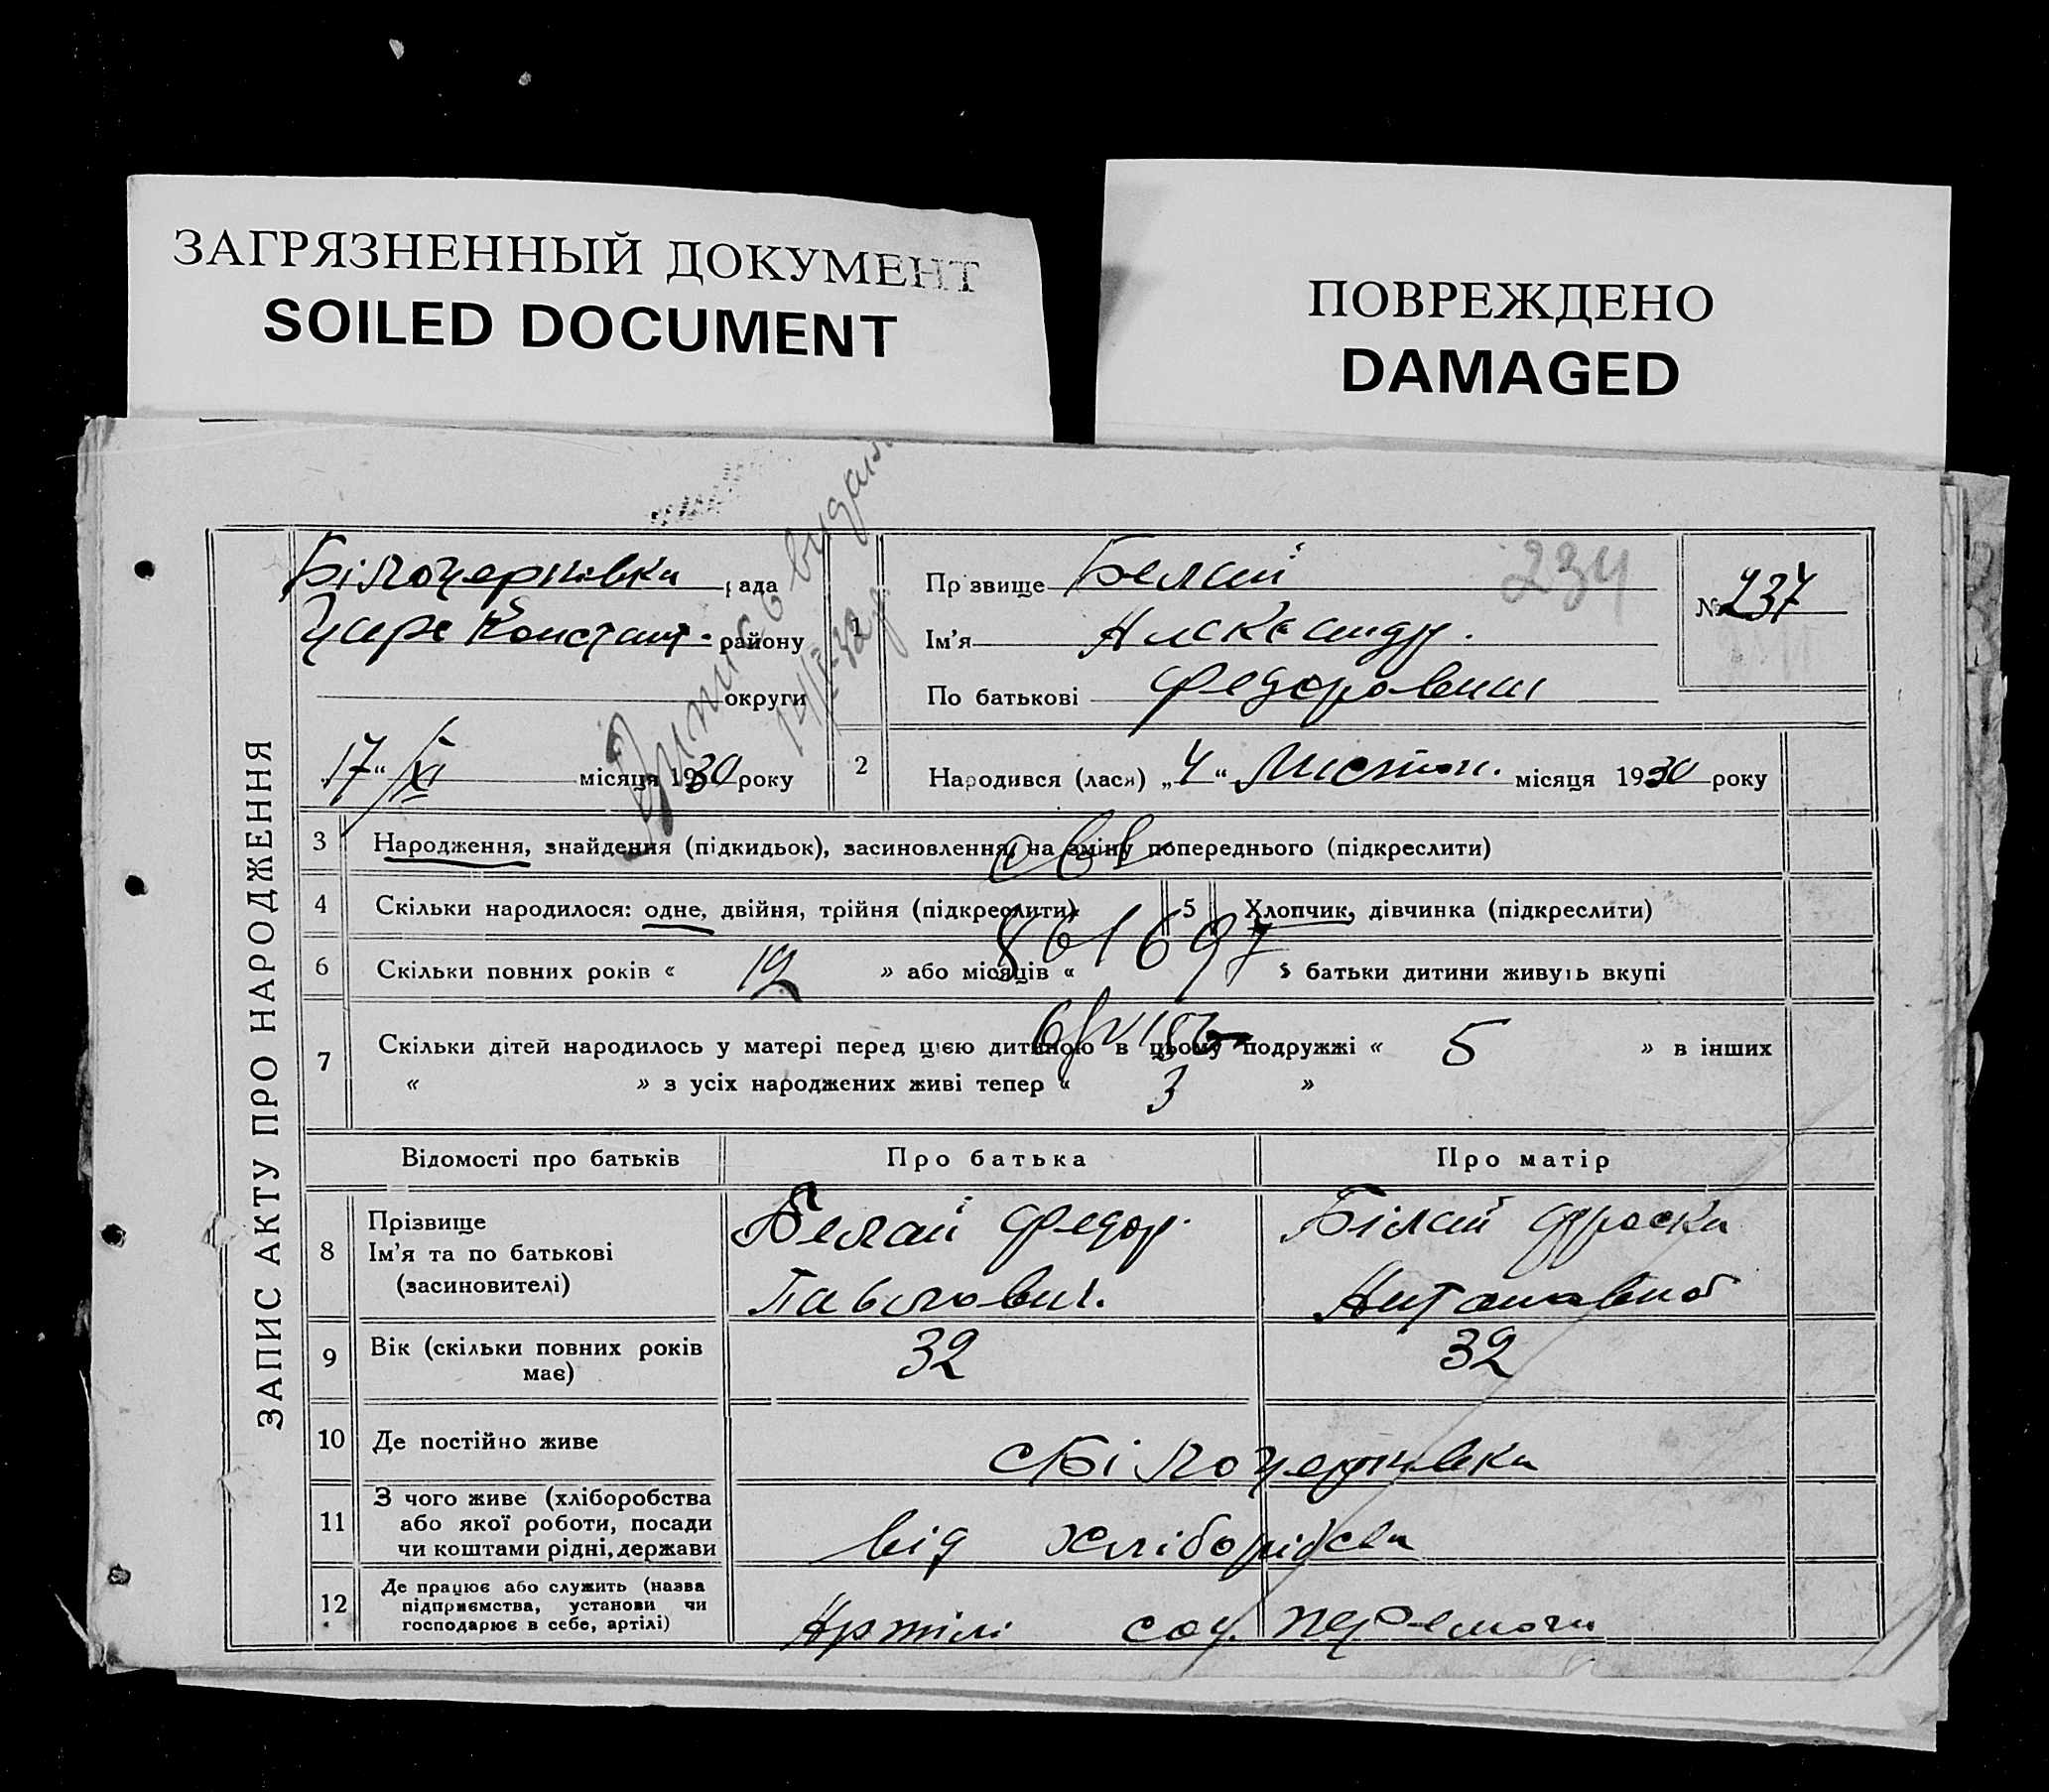 ЗАГРЯЗНЕННЫЙ ДОКУМЕНТ
SOILED DOCUMENT
ПОВРЕЖДЕНО
DAMAGED
ЗАПИС АКТУ ПРО НАРОДЖЕННЯ
Білоцерковка рада
району
округи
17 " XI місяця 1930 року
1
Прізвище Белай
Ім'я Александр.
По батькові Федорович
234
№ 237
2 Народився (лася) „4“ Листоп. місяця 1930 року
3 Народження, знайдення (підкидьок), засиновлення, на зміну попереднього (підкреслити)
4 Скільки народилося: одне, двійня, трійня (підкреслити) 5 Хлопчик, дівчинка (підкреслити)
861697
6 Скільки повних років « 12 » або місяців « » батьки дитини живуть вкупі
7 Скільки дітей народилось у матері перед цією дитиною в цьому подружжі « 5 » в інших
« » з усіх народжених живі тепер « 3 »
Відомості про батьків Про батька Про матір
8 Прізвище Ім'я та по батькові (засиновителі)
Белай Федор
Павлович.
Білай Фроска
Антоновна
9 Вік (скільки повних років має) 32 32
10 Де постійно живе с Білоцерковка
11 З чого живе (хліборобства або якої роботи, посади чи коштами рідні, держави від хліборобства
12 Де працює або служить (назва підприємства, установи чи господарює в себе, артілі) Артілі соц. перемоги